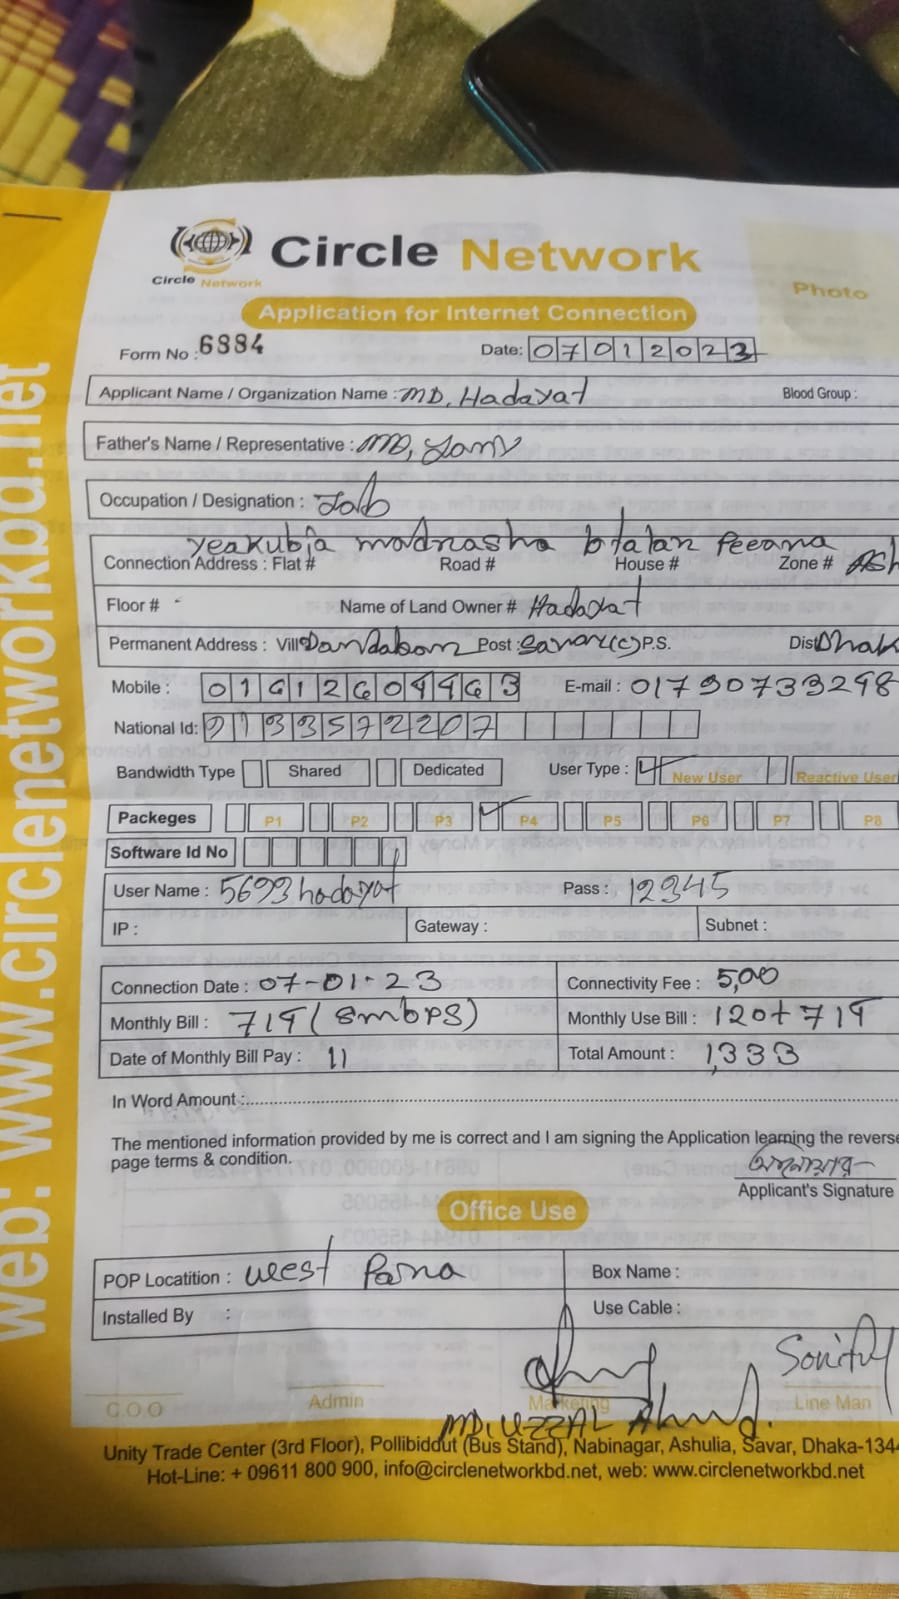 Circle Network
Circle Network
Photo
Application for Internet Connection
Form No : 6884 Date: 07012023
Applicant Name / Organization Name : MD, Hadayat Blood Group :
Father's Name / Representative : MD,
Occupation / Designation : Job
Yeakubia madrasha
Connection Address : Flat # Road # House # Zone # Ash
Floor # - Name of Land Owner # Hadayat
Permanent Address : Vill Post : Savar(c) P.S. Dist Dhak
Mobile : E-mail : 01790733298
National Id:
Bandwidth Type Shared Dedicated User Type : New User Reactive User
Packeges P1 P2 P3 P4 P5 P6 P7 P8
Software Id No
User Name : 5693hadayat Pass : 12345
IP : Gateway : Subnet :
Connection Date : 07-01-23 Connectivity Fee : 5,00
Monthly Bill : 714 (8mbps) Monthly Use Bill : 120+714
Date of Monthly Bill Pay : 11 Total Amount : 1,333
In Word Amount :
The mentioned information provided by me is correct and I am signing the Application learning the reverse
page terms & condition.
Applicant's Signature
Office Use
POP Locatition : West Box Name :
Installed By : Use Cable :
C.O.O Admin Marketing Line Man
MD. UZZAL Ahmed.
Unity Trade Center (3rd Floor), Pollibiddut (Bus Stand), Nabinagar, Ashulia, Savar, Dhaka-134
Hot-Line: + 09611 800 900, info@circlenetworkbd.net, web: www.circlenetworkbd.net
web: www.circlenetworkbd.net